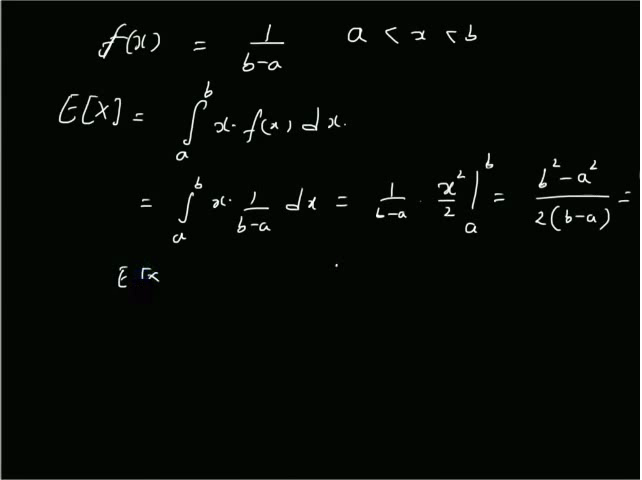 f(x) = 1/(b-a)   a < x < b
E[X] = ∫_a^b x · f(x) dx.
= ∫_a^b x · 1/(b-a) dx = 1/(b-a) · x²/2 |_a^b = (b² - a²)/(2(b-a)) =
E [x